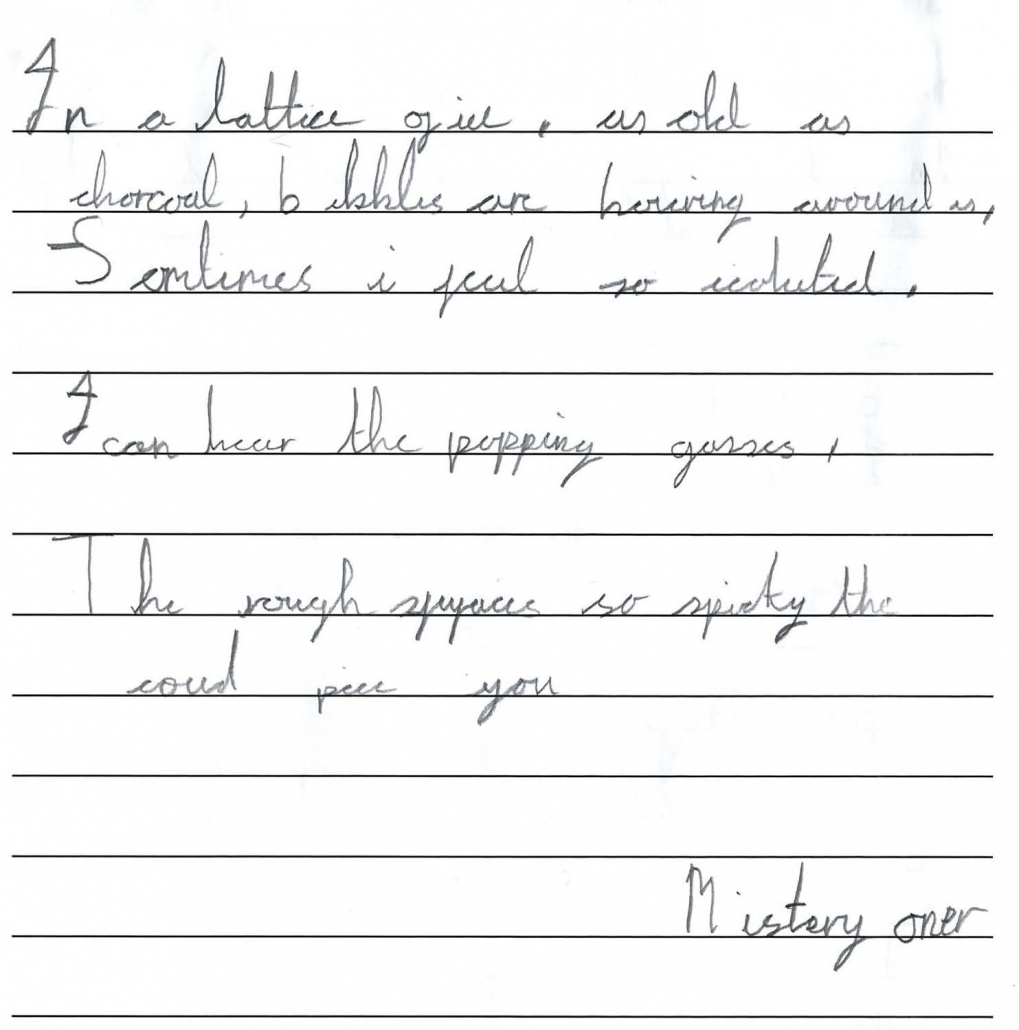 In a lattice of ice, as old as
charcoal, bubbles are boiring around is,
Somtimes i feel so icoluted.
I can hear the popping gasses,
The rough spyaces so spicky the
coud pice you
Mistery oner